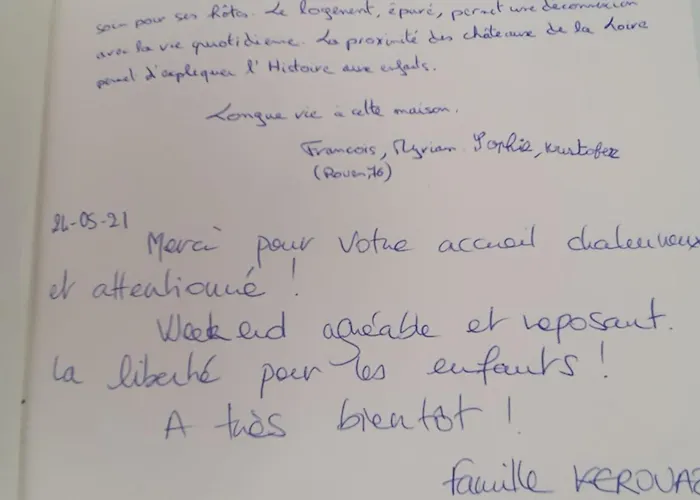 soin pour ses hôtes. Le logement, épuré, permet une déconnexion
avec la vie quotidienne. La proximité des châteaux de la Loire
permet d'expliquer l'Histoire aux enfants.
Longue vie à cette maison.
Francois, Myriam Sophie, Kristofer
(Rouen, 76)
24-05-21
Merci pour votre accueil chaleureux
et attentionné !
Week end agréable et reposant.
La liberté pour les enfants !
A très bientôt !
famille KEROUAZ